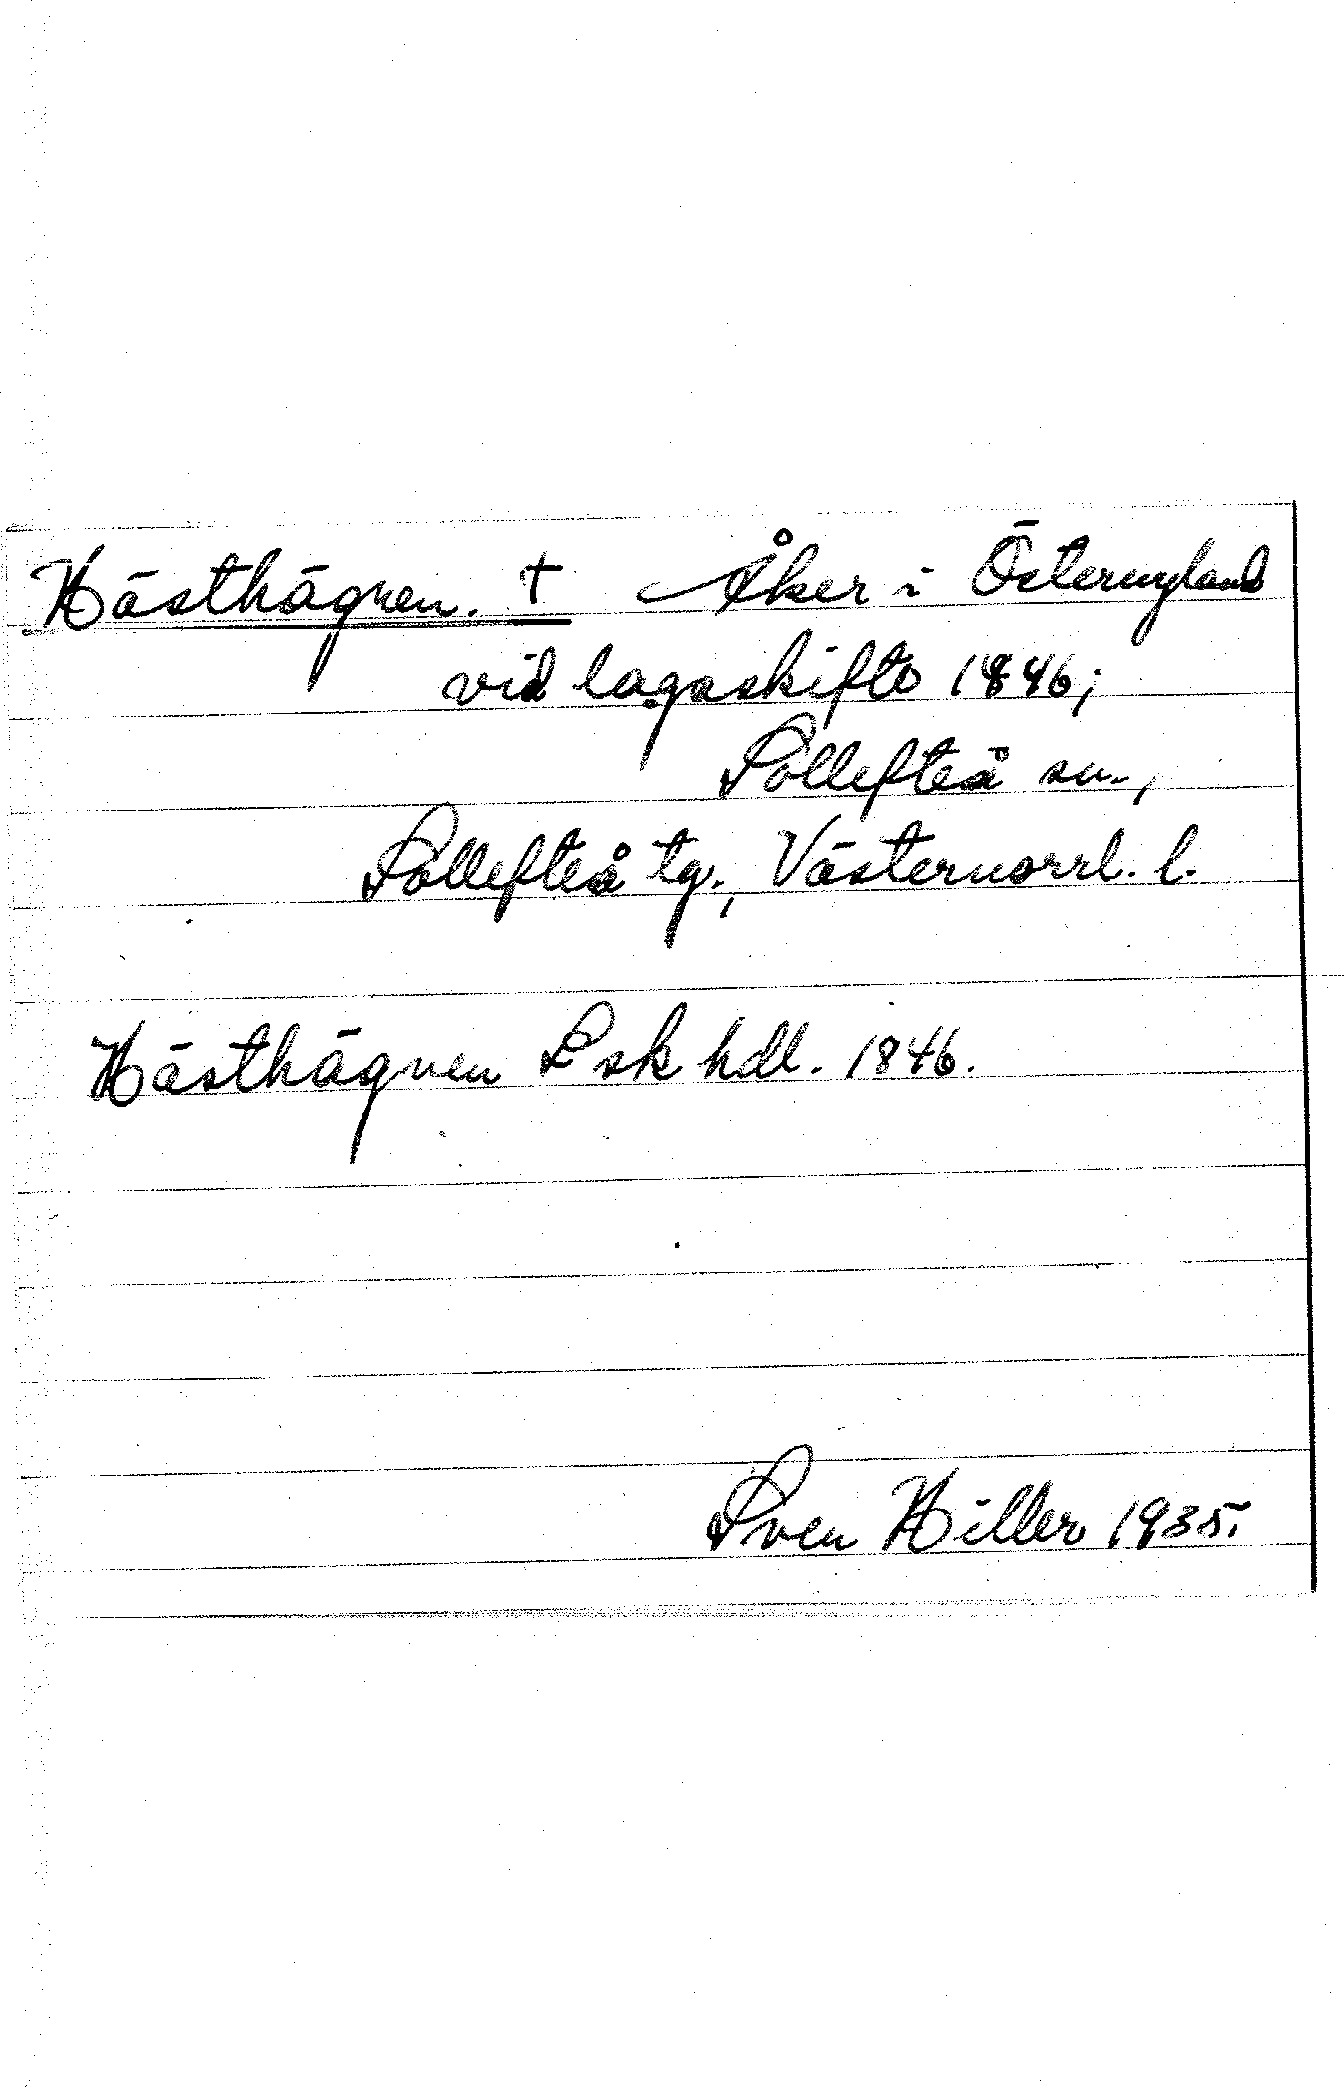 Hästhägnen. † Åker i Östernyland
vid lagaskifte 1846;
Sollefteå sn.,
Sollefteå tg., Västernorrl. l.
Hästhägnen L sk hdl. 1846.
Sven Hiller 1935.